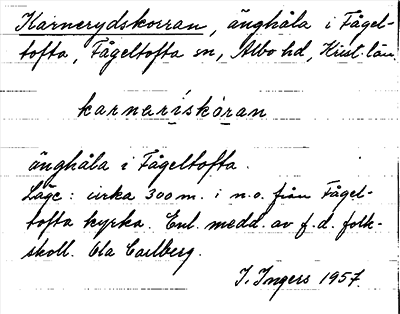 Kärnerydskorran, änghåla i Fågel-
tofta, Fågeltofta sn, Albo hd, Krist. län.
karnariskóran
änghåla i Fågeltofta.
Läge: cirka 300 m. i n.o. från Fågel-
tofta kyrka. Enl. medd. av f.d. folk-
skoll. Ola Carlberg.
I. Ingers 1957.